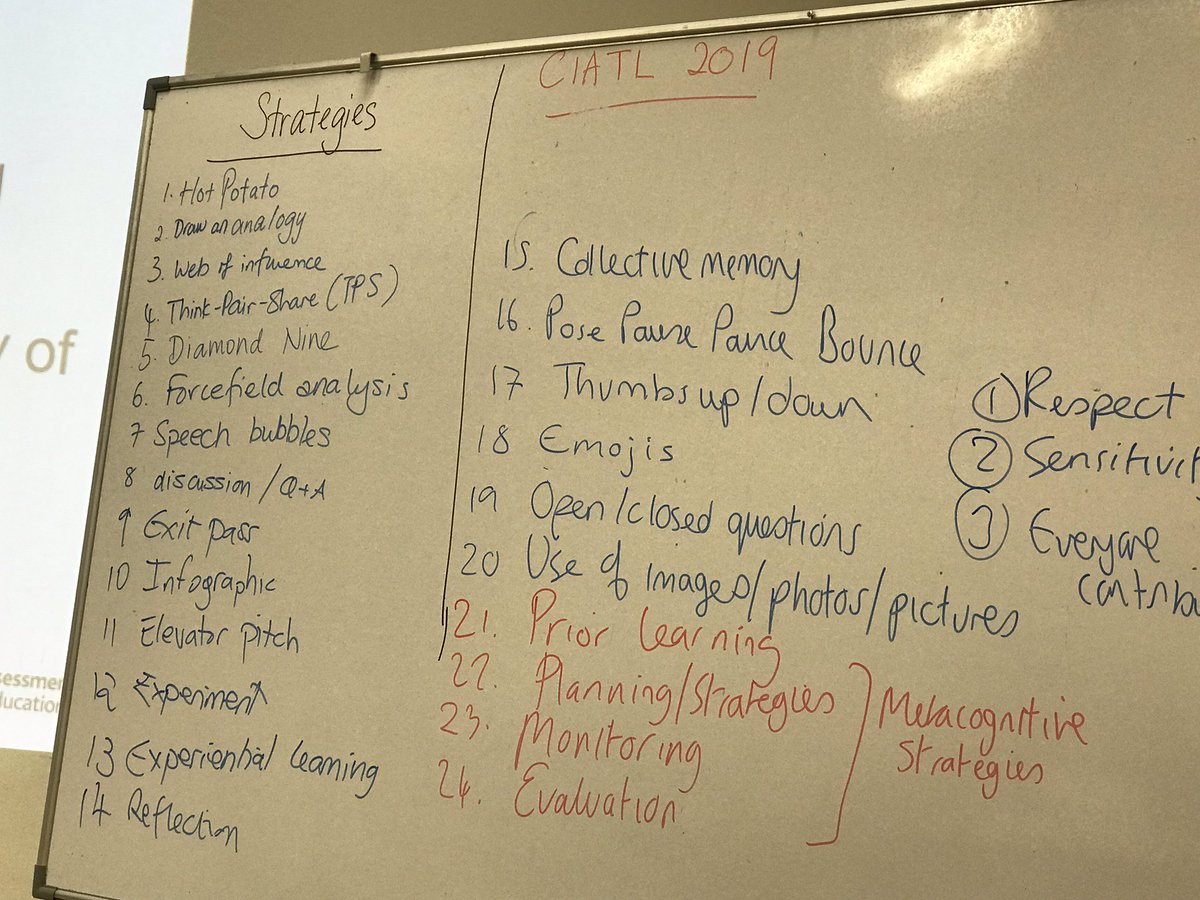 Strategies
1. Hot Potato
2. Draw an analogy
3. Web of influence
4. Think-Pair-Share (TPS)
5. Diamond Nine
6. Forcefield analysis
7 Speech bubbles
8 discussion / Q+A
9 Exit pass
10 Infographic
11 Elevator pitch
12 Experiment
13 Experiential learning
14 Reflection
CIATL 2019
15. Collective memory
16. Pose Pause Pounce Bounce
17 Thumbs up/down
18 Emojis
19 Open/closed questions
20 Use of images/photos/pictures
21. Prior learning
22. Planning/Strategies
23. Monitoring
24. Evaluation
Metacognitive
Strategies
1 Respect
2 Sensitivit
3 Everyone
contribu
y of
sessmen
ducation